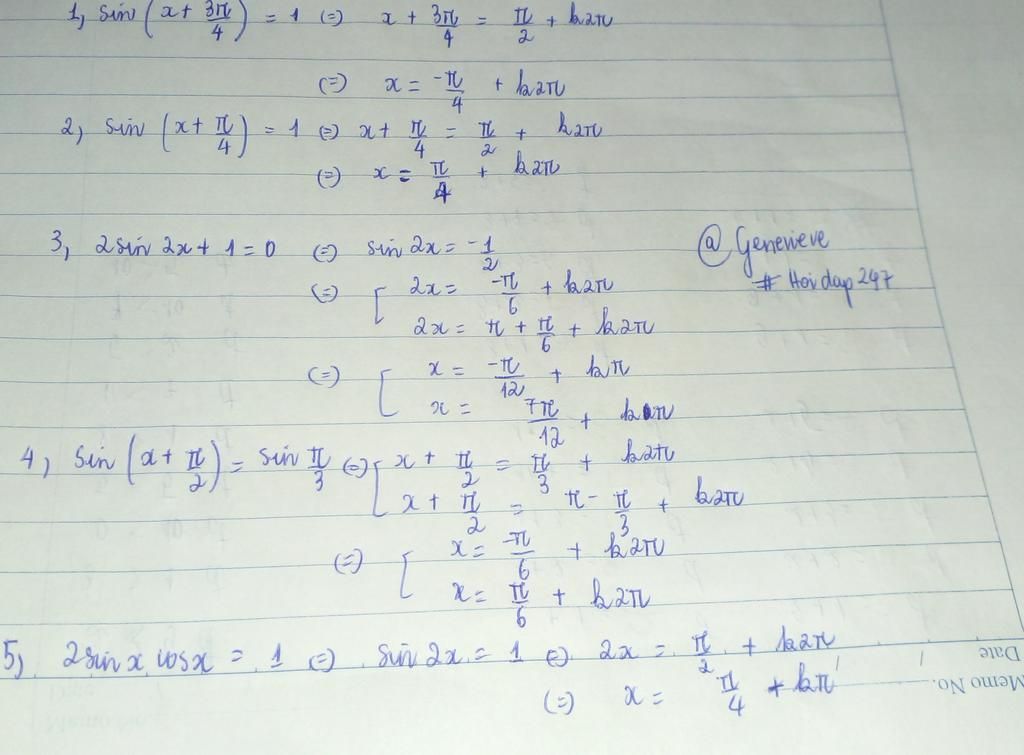 1, sin(x + 3π/4) = 1 (=) x + 3π/4 = π/2 + k2π
(=) x = -π/4 + k2π
2, sin(x + π/4) = 1 (=) x + π/4 = π/2 + k2π
(=) x = π/4 + k2π
3, 2sin 2x + 1 = 0 (=) sin 2x = -1/2
@ Genevieve
# Hoidap 247
(=) [ 2x = -π/6 + k2π
2x = π + π/6 + k2π
(=) [ x = -π/12 + kπ
x = 7π/12 + kπ
4, sin(x + π/2) = sin π/3 (=) [ x + π/2 = π/3 + k2π
x + π/2 = π - π/3 + k2π
(=) [ x = -π/6 + k2π
x = π/6 + k2π
5, 2sinx cosx = 1 (=) sin 2x = 1 (=) 2x = π/2 + k2π
(=) x = π/4 + kπ
Date
Memo No.